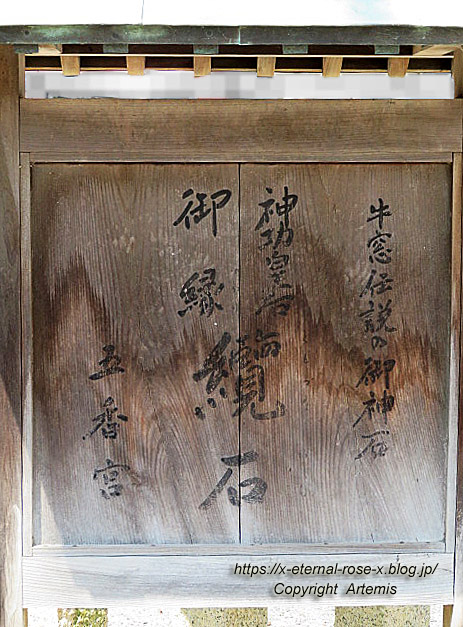 牛窓伝説の御神石
神功皇后
御縁纜石
五香宮
https://x-eternal-rose-x.blog.jp/
Copyright Artemis